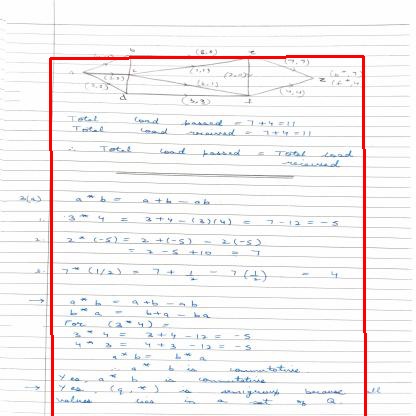 b (8,8) e (7,7)
c (7,7) z
d (3,3) f (4,4)
Total load passed = 7+4=11
Total load received = 7+4=11
∴ Total load passed = Total load
received
3(a) a * b = a+b - ab
1. 3 * 4 = 3+4 - (3)(4) = 7-12 = -5
2. 2 * (-5) = 2 + (-5) - 2(-5)
= 2 - 5 + 10 = 7
3. 7 * (1/2) = 7 + 1/2 - 7(1/2) = 4
→ a * b = a+b - ab
b * a = b+a - ba
For (3*4) =
3 * 4 = 3+4 -12 = -5
4 * 3 = 4+3 -12 = -5
a * b = b * a
∴ a * b is commutative
Yes, a * b is commutative
→ Yes, (q, *) is semigroup because all
values lies in a set of Q.